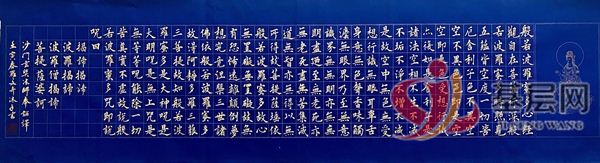 般若波羅蜜多心經
觀自在菩薩行深般
若波羅蜜多時照見
五蘊皆空度一切苦
厄舍利子色不異空
空不異色色即是空
空即是色受想行識
亦復如是舍利子是
諸法空相不生不滅
不垢不淨不增不減
是故空中無色無受
想行識無眼耳鼻舌
身意無色聲香味觸
法無眼界乃至無意
識界無無明亦無無
明盡乃至無老死亦
無老死盡無苦集滅
道無智亦無得以無
所得故菩提薩埵依
般若波羅蜜多故心
無罣礙無罣礙故無
有恐怖遠離顛倒夢
想究竟涅槃三世諸
佛依般若波羅蜜多
故得阿耨多羅三藐
三菩提故知般若波
羅蜜多是大神咒是
大明咒是無上咒是
無等等咒能除一切
苦真實不虛故說般
若波羅蜜多咒即說
咒曰
揭諦揭諦
波羅揭諦
波羅僧揭諦
菩提薩婆訶
沙門玄奘法師奉詔譯
基层网
JICENG WANG